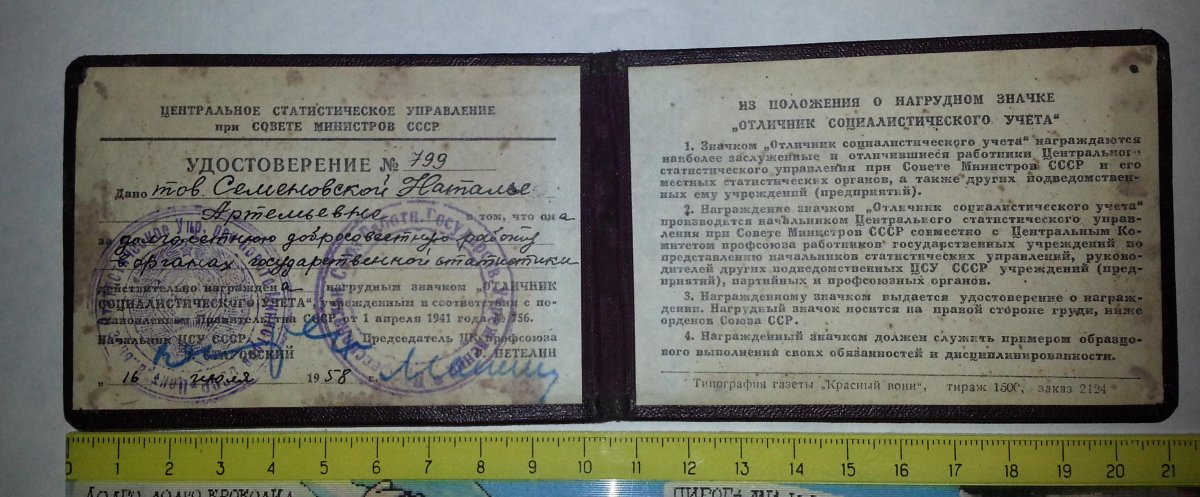 ЦЕНТРАЛЬНОЕ СТАТИСТИЧЕСКОЕ УПРАВЛЕНИЕ
при СОВЕТЕ МИНИСТРОВ СССР
УДОСТОВЕРЕНИЕ № 799
Дано тов. Семеновской Наталье
Артемьевне в том, что она
за долголетнюю добросовестную работу
в органах государственной статистики
действительно награждена нагрудным значком „ОТЛИЧНИК
СОЦИАЛИСТИЧЕСКОГО УЧЕТА“, учрежденным в соответствии с по-
становлением Правительства СССР от 1 апреля 1941 года № 756.
Начальник ЦСУ СССР Председатель ЦК профсоюза
СТАРОВСКИЙ ПЕТЕЛИН
„16 июля 1958 г.
ИЗ ПОЛОЖЕНИЯ О НАГРУДНОМ ЗНАЧКЕ
„ОТЛИЧНИК СОЦИАЛИСТИЧЕСКОГО УЧЕТА“
1. Значком „Отличник социалистического учета“ награждаются
наиболее заслуженные и отличившиеся работники Центрального
статистического управления при Совете Министров СССР и его
местных статистических органов, а также других подведомствен-
ных ему учреждений (предприятий).
2. Награждение значком „Отличник социалистического учета“
производится начальником Центрального статистического управ-
ления при Совете Министров СССР совместно с Центральным Ко-
митетом профсоюза работников государственных учреждений по
представлению начальников статистических управлений, руково-
дителей других подведомственных ЦСУ СССР учреждений (пред-
приятий), партийных и профсоюзных органов.
3. Награжденному значком выдается удостоверение о награж-
дении. Нагрудный значок носится на правой стороне груди, ниже
орденов Союза ССР.
4. Награжденный значком должен служить примером образцо-
вого выполнения своих обязанностей и дисциплинированности.
Типография газеты „Красный воин“, тираж 1500, заказ 2124
0 1 2 3 4 5 6 7 8 9 10 11 12 13 14 15 16 17 18 19 20 21